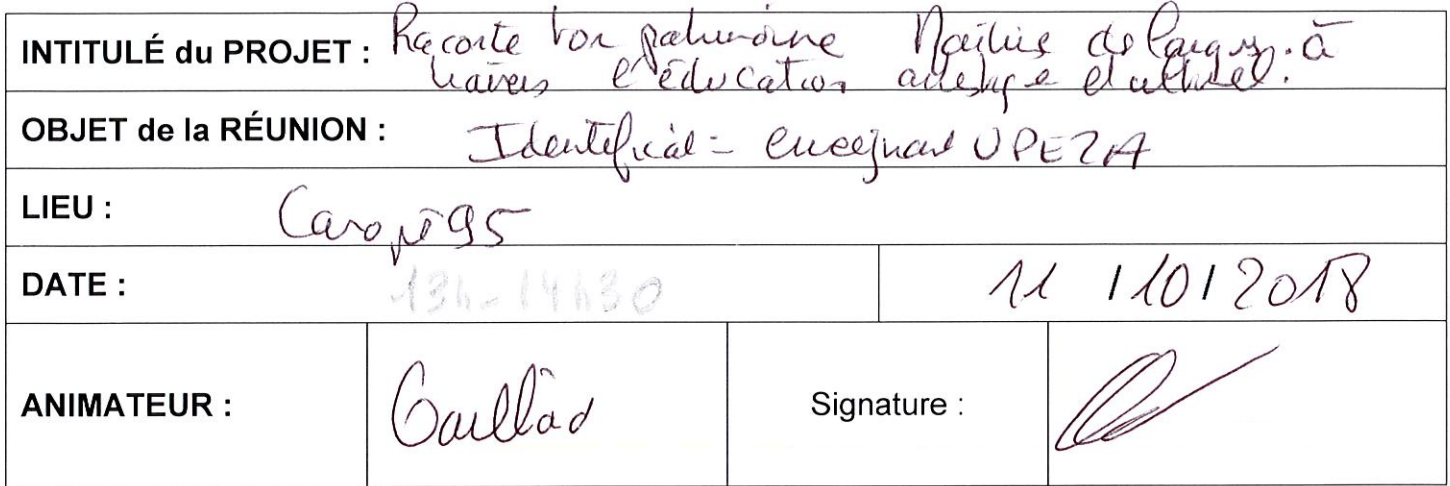 INTITULÉ du PROJET : Raconte ton patrimoine Maîtrise de langue. à
travers l'éducation artistique et culturel.
OBJET de la RÉUNION : Identificat= enseignant UPE2A
LIEU : Canopé 95
DATE : 13h-14h30 11 / 10 / 2018
ANIMATEUR : Gaillard Signature :